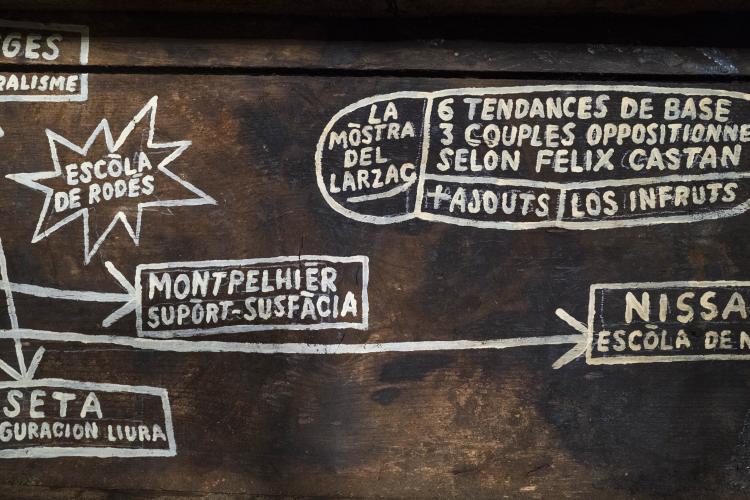 GES
RALISME
ESCÒLA
DE RODÉS
LA
MÒSTRA
DEL
LARZAC
6 TENDANCES DE BASE
3 COUPLES OPPOSITIONNE
SELON FELIX CASTAN
+AJOUTS
LOS INFRUTS
MONTPELHIÈR
SUPÒRT-SUSFÀCIA
NISSA
ESCÒLA DE N
SETA
GURACION LIURA